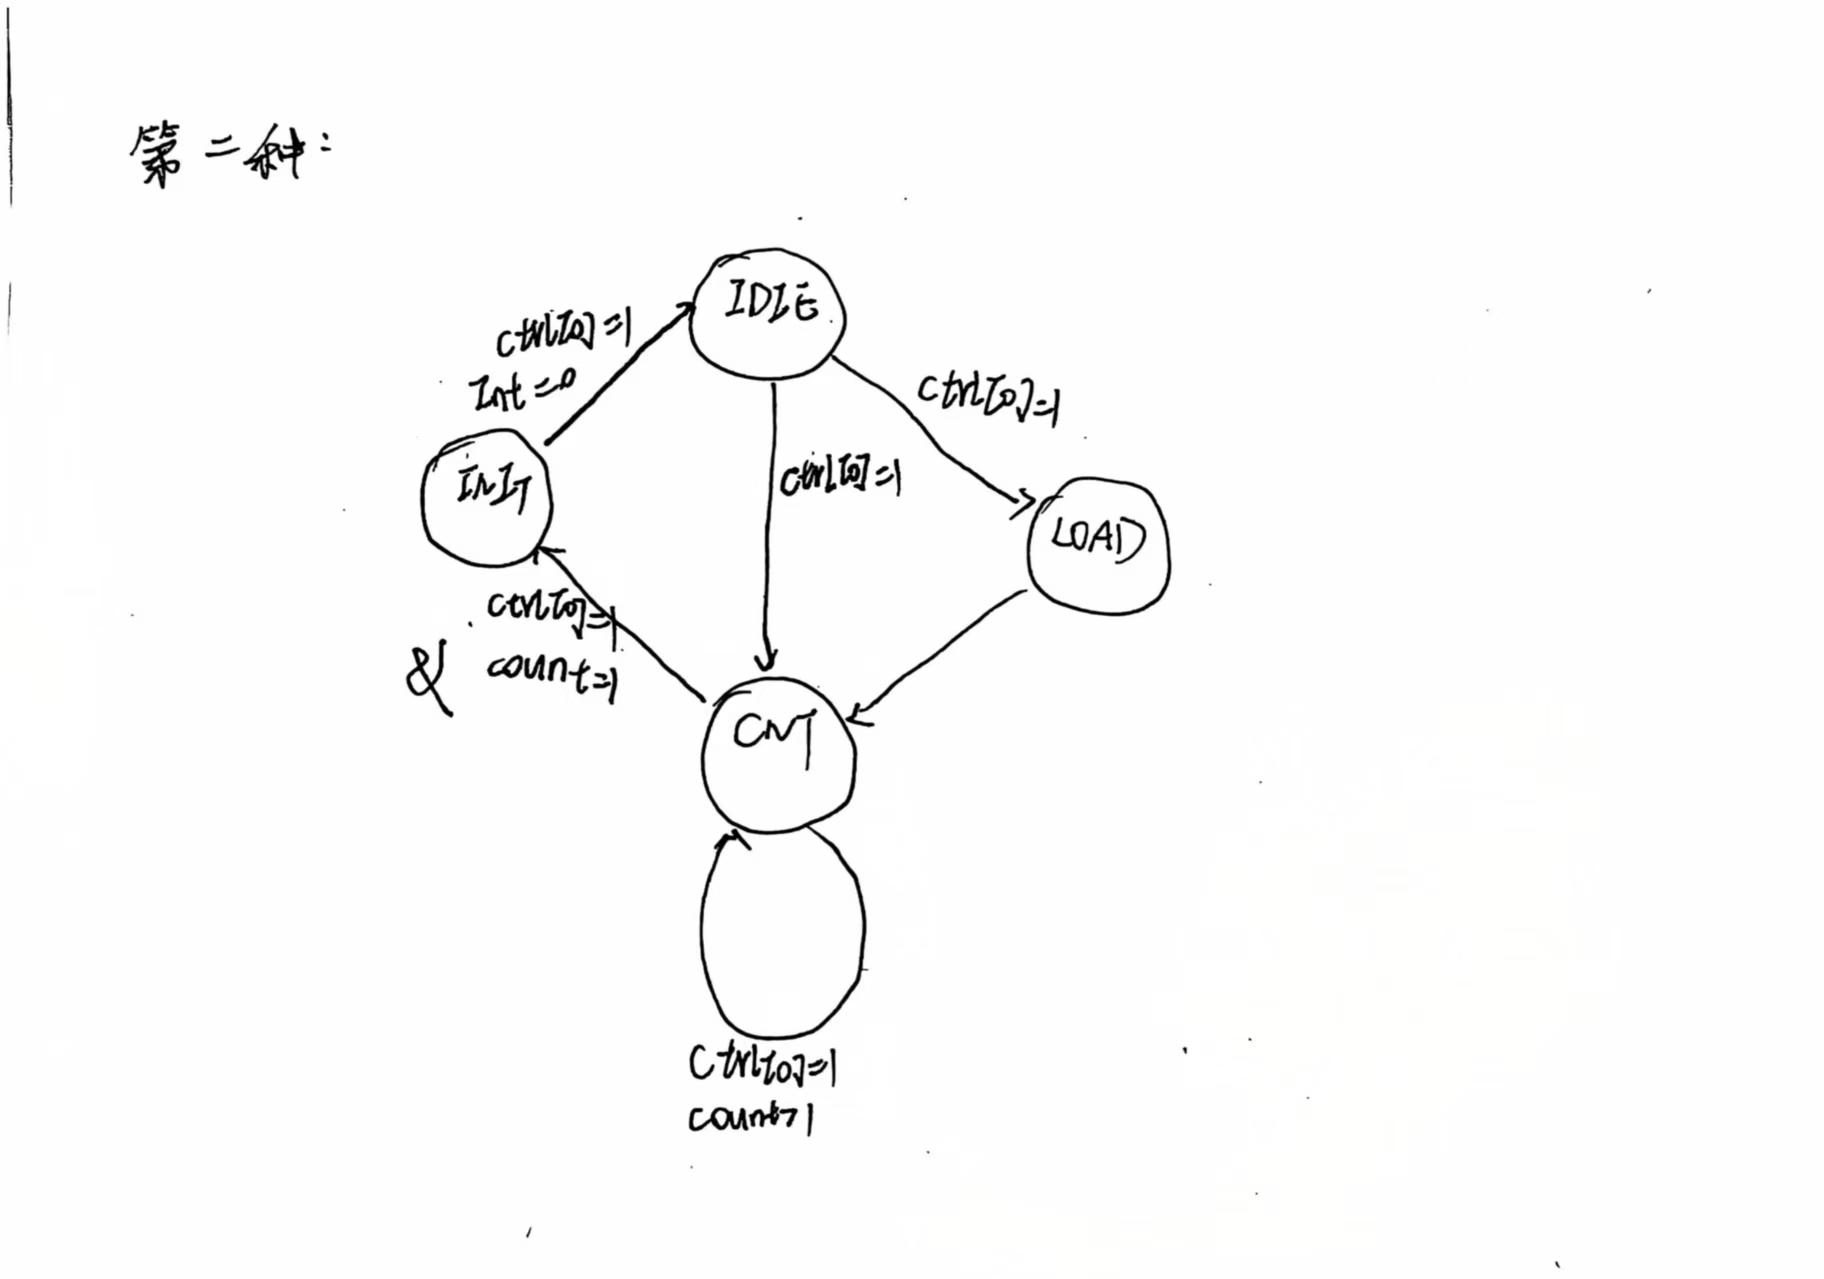 第二种:
IDIE
ctrl[0]=1
Int=0
ctrl[0]=1
ctrl[0]=1
INIT
LOAD
ctrl[0]=1
& count=1
CNT
Ctrl[0]=1
count>1